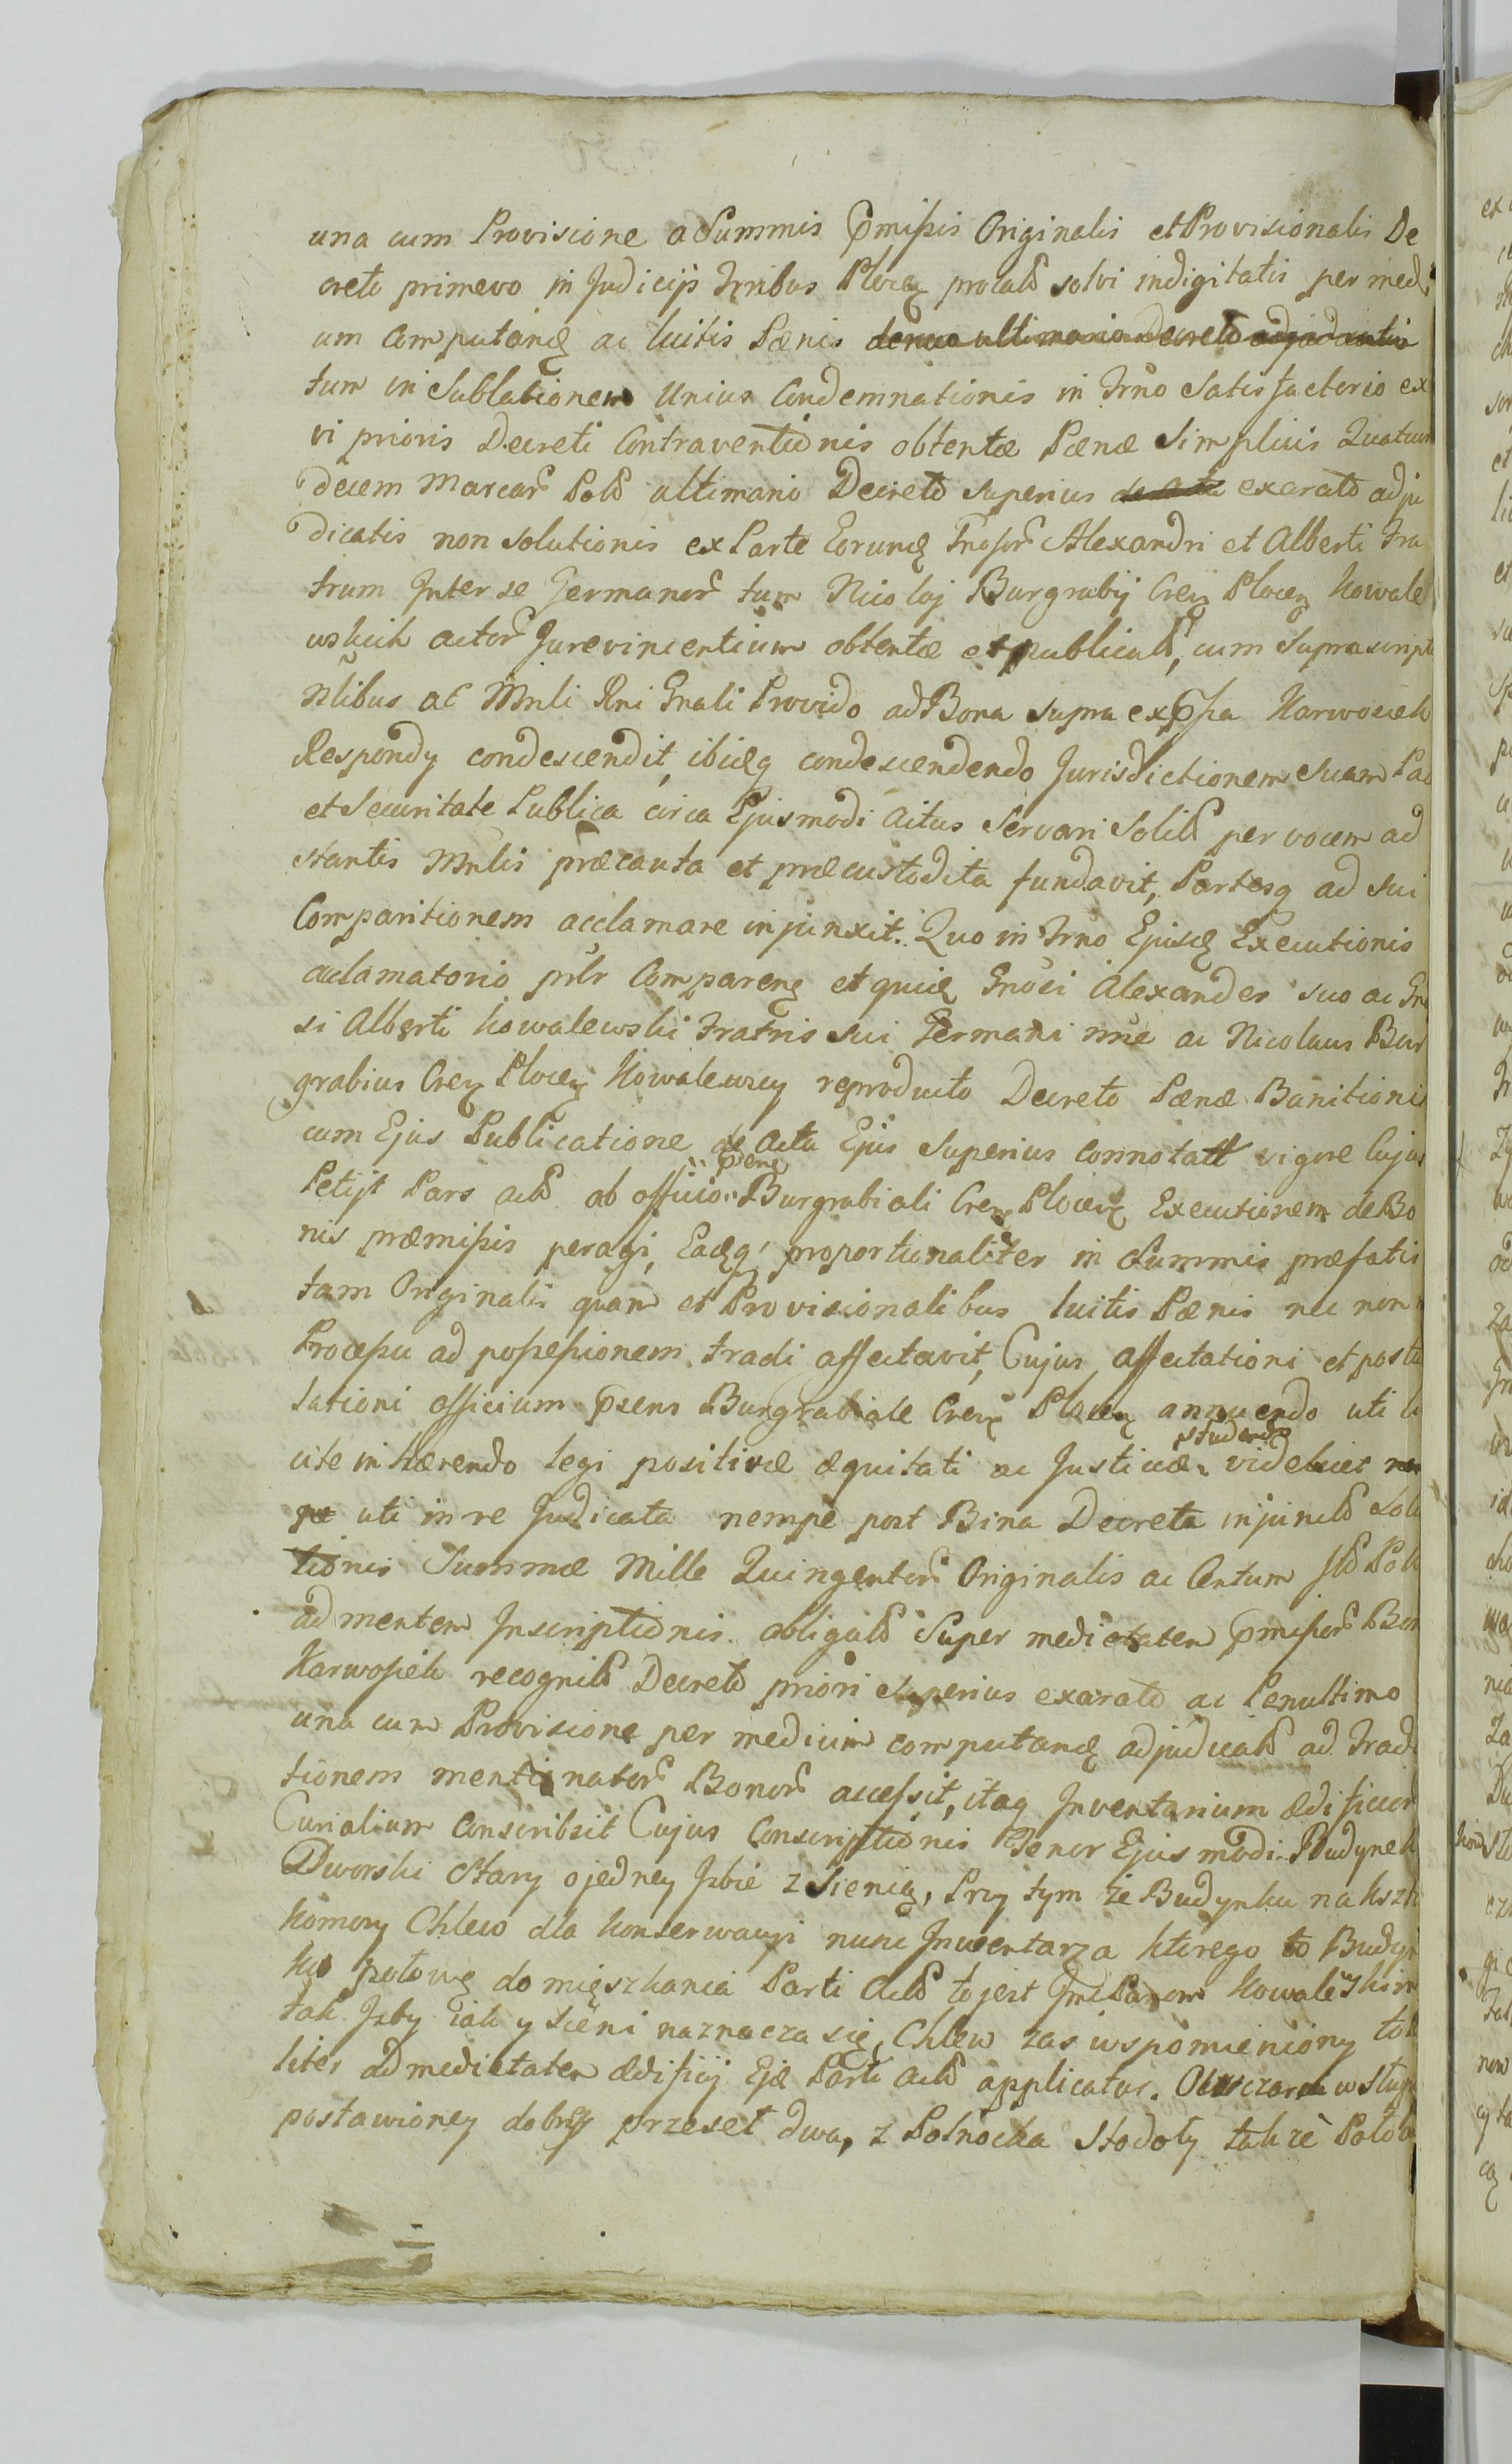 una cum Provisione a Summis pmissis Originalis et Provisionalis De
creto primevo in Judicijs Trribus Plocen prolato solvi indigitatis per medi
um Computand ac luitis Pænis denuo ultimario Decreto adjudicatis
tum in Sublationem Unius Condemnationis in Trno Satisfactorio ex
vi prioris Decreti Contraventionis obtentæ Pænæ Simplicis Quatuor
decem Marcar Polo ultimario Decreto Superius exarato adju
dicatis non Solutionis ex Parte Eorund Gnosor Alexandri et Alberti Fra
trum Inter se Germanor tum Nicolaj Burgrabij Cren Plocen Kowale
wskich actor Jurevincentium obtentæ et publicatæ, cum Suprascript
Nlibus ac Mnli Rni Gnali Provido ad Bona Supra expssa Karwosieki
Respondy condescendit, ibidq condescendendo Jurisdictionem Suam Pac
et Securitate Publica circa Ejusmodi Actus Servari Solit per vocem ad
stantis Mnlis præcauta et præcustodita fundavit, Partesq ad Sui
Comparitionem acclamare injunxit. Quo in Trno Ejusd Executionis
acclamatorio pslr Comparens et quid Gnosi Alexander suo ac Gno
si Alberti Kowalewski Fratris Sui Germani nne ac Nicolaus Bur
grabius Cren Plocen Kowalewscy reproducto Decreto Pænæ Banitionis
cum Ejus Publicatione de Actu Ejus Superius connotatt vigore Cujus
Petijt Pars acto ab officio psenti Burgrabiali Cren Plocen Executionem de Bo
nis præmissis peragi, Eadq proportionaliter in Summis præfatis
tam Originalis quam et Provisionalibus luitis Pænis nec non
Processu ad possessionem tradi affectavit, Cujus affectationi et postu
lationi officium psens Burgrabiale Cren Plocen annuendo uti li
cite inhærendo legi positivæ æquitati ac Justiciæ studendo videlicet
uti in re Judicata nempe post Bina Decreta injuncto Solu
tionis Summæ Mille Quingentor Originalis ac Centum flo Pol
ad mentem Inscriptionis obligato Super medietatem pmissor Bon
Karwosieki recognito Decreto priori Superius exarato ac Penultimo
una cum Provisione per medium computand adjudicato ad Tradi
tionem mentionator Bonor accessit, itaq Inventarium ædificior
Curialium Conscribsit Cujus Conscriptionis Tenor Ejusmodi. Budynek
Dworski Stary o jedney Izbie z Sienią, Przy tym że Budynku na kszt
komory Chlew dla konserwacyi nunc Inwentarza którego to Budyn
ku połowę do mięszkania Parti Acto to jest Jmc Panom Kowalewskim
tak Izby iako y Sieni naznacza się, Chlew zas wspomieniony tota
liter ad medietatem ædificij Ejæ Parti Acto applicatur. Owczarni w Słup
postawioney dobrey przeset dwa, z Połnocka Stodoły także Połow